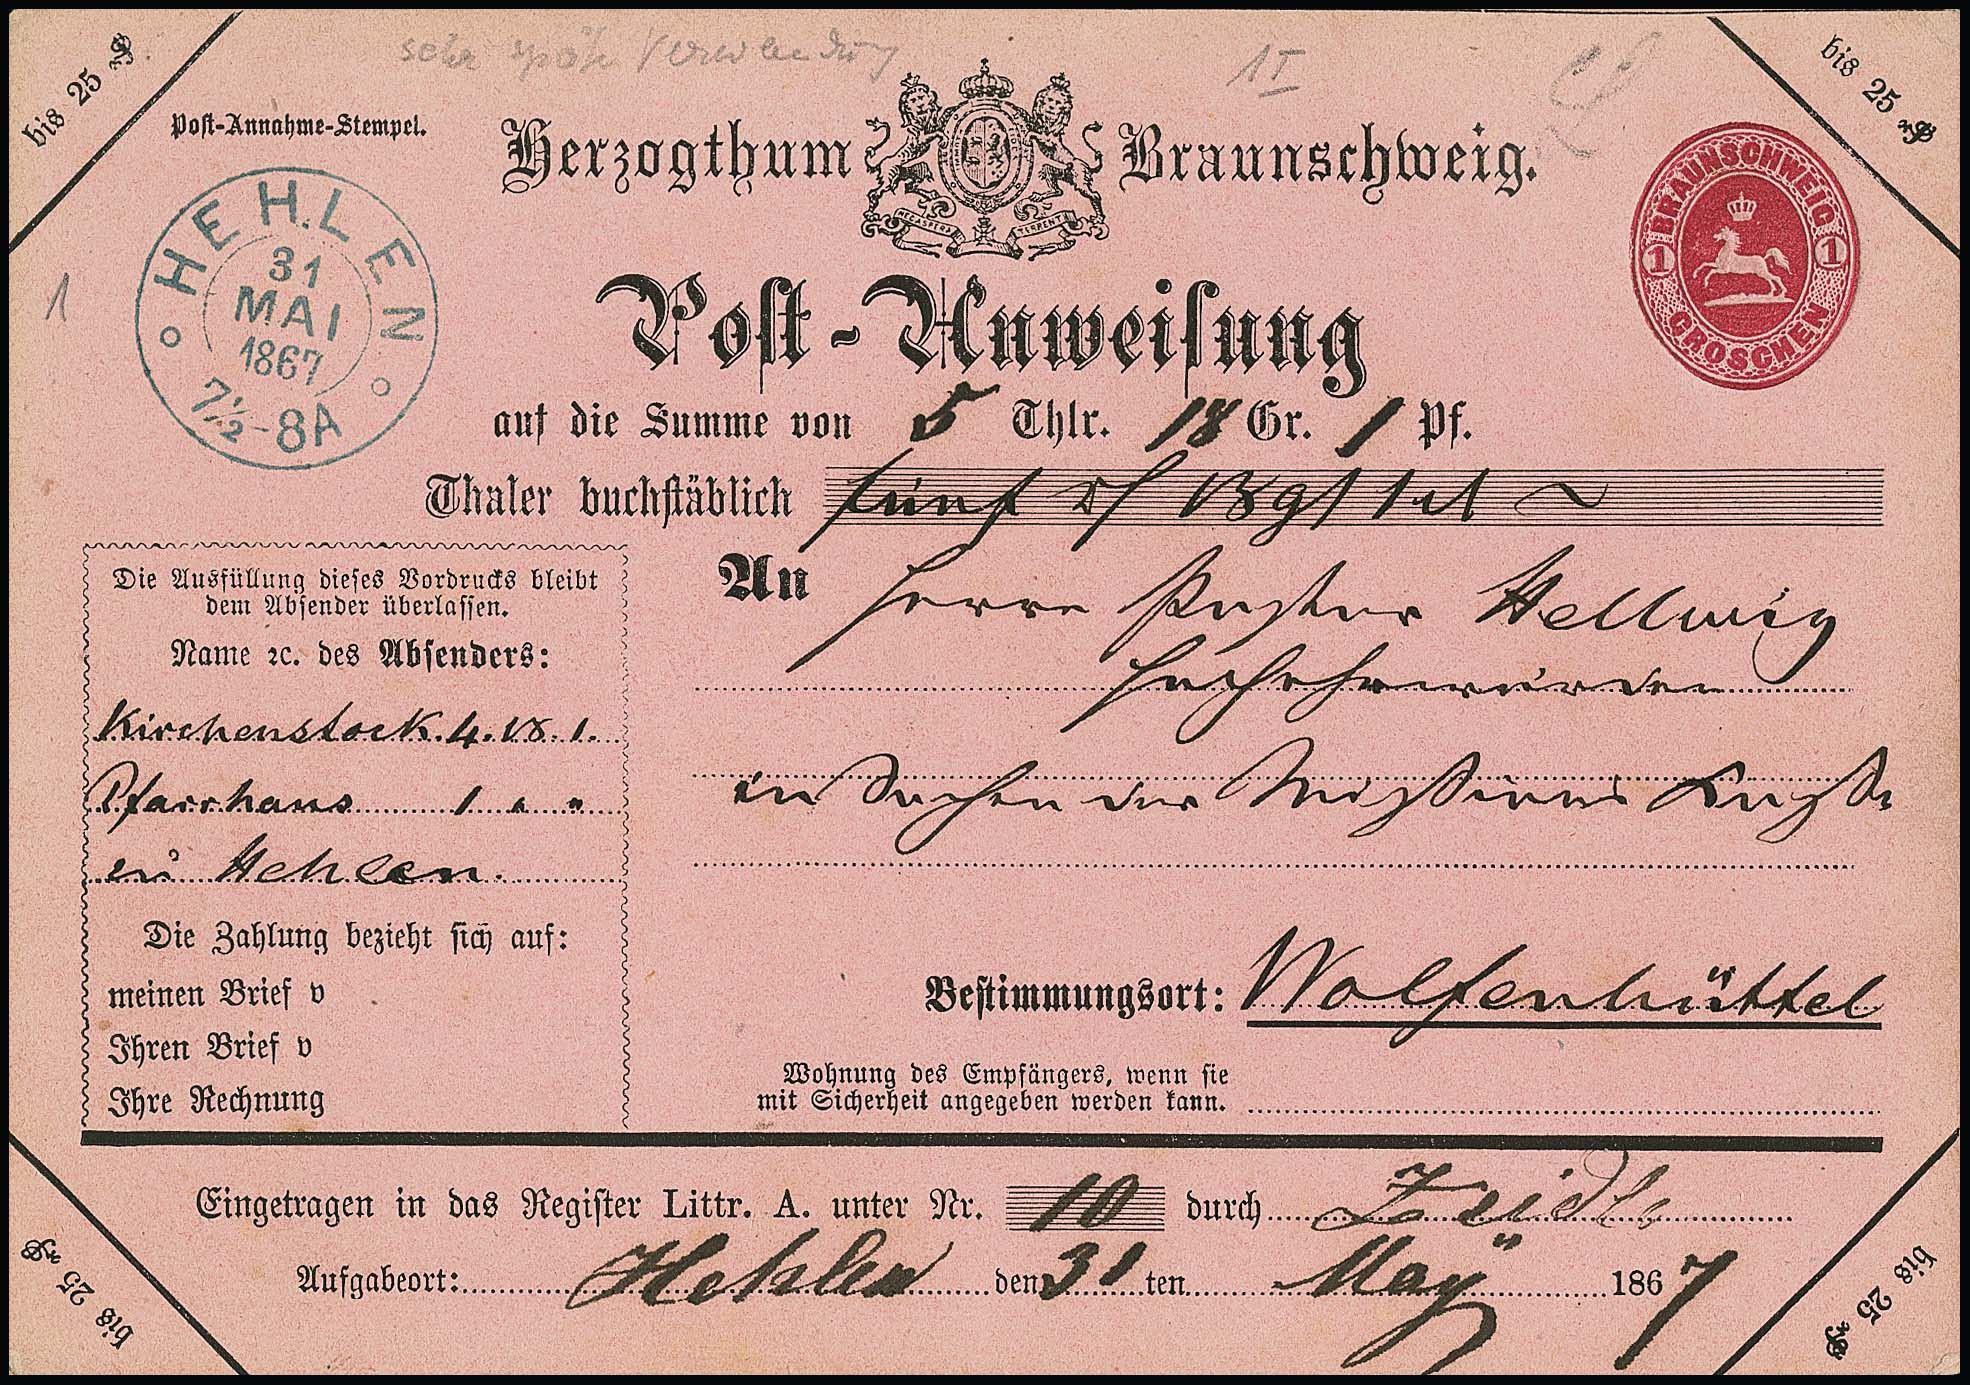 sehr späte Verwendung
1 I
bis 25 ₰
bis 25 ₰
Post-Annahme-Stempel.
Herzogthum Braunschweig.
NEC ASPERA TERRENT
BRAUNSCHWEIG
1 1
GROSCHEN
HEHLEN
31
MAI
1867
7½-8A
1
Post-Anweisung
auf die Summe von 5 Thlr. 18 Gr. 1 Pf.
Thaler buchstäblich fünf
Die Ausfüllung dieses Vordrucks bleibt
dem Absender überlassen.
Name ꝛc. des Absenders:
Kirchenstock. 4. 18. 1.
Pfarrhaus 1 " "
in Hehlen.
Die Zahlung bezieht sich auf:
meinen Brief v
Ihren Brief v
Ihre Rechnung
An Herrn Pastor Hellwig
Hochehrwürden
in Sachen der Missions Kasse
Bestimmungsort: Wolfenbüttel
Wohnung des Empfängers, wenn sie
mit Sicherheit angegeben werden kann.
Eingetragen in das Register Littr. A. unter Nr. 10 durch
Aufgabeort: Hehlen den 31 ten May 1867
bis 25 ₰
bis 25 ₰